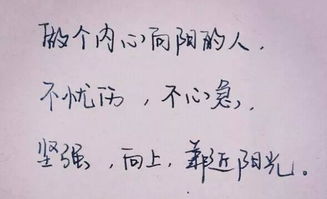 做个内心向阳的人.
不忧伤，不心急.
坚强，向上，靠近阳光。